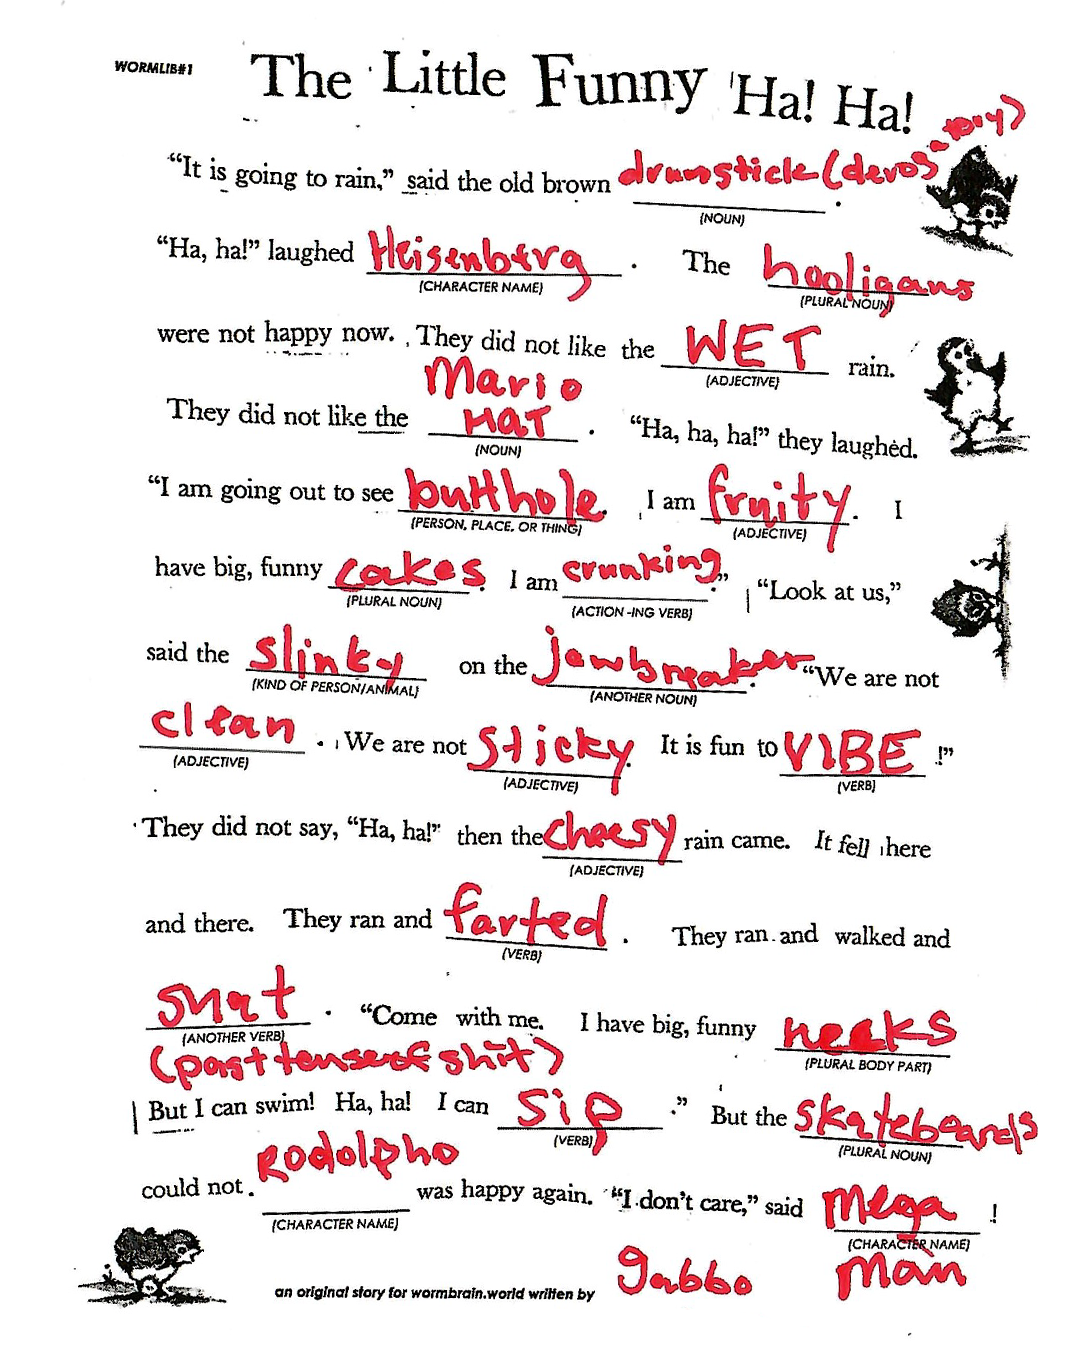 WORMLIB#1
The Little Funny Ha! Ha!
"It is going to rain," said the old brown drumstick (devos a toy) .
(NOUN)
"Ha, ha!" laughed Heisenberg . The hooligans
(CHARACTER NAME) (PLURAL NOUN)
were not happy now. They did not like the WET rain.
(ADJECTIVE)
Mario
They did not like the HAT . "Ha, ha, ha!" they laughed.
(NOUN)
"I am going out to see butthole. I am fruity. I
(PERSON, PLACE, OR THING) (ADJECTIVE)
have big, funny cakes. I am crunking." "Look at us,"
(PLURAL NOUN) (ACTION -ING VERB)
said the slinky on the jawbreaker. "We are not
(KIND OF PERSON/ANIMAL) (ANOTHER NOUN)
clean . We are not sticky. It is fun to VIBE !"
(ADJECTIVE) (ADJECTIVE) (VERB)
They did not say, "Ha, ha!" then the cheesy rain came. It fell here
(ADJECTIVE)
and there. They ran and farted . They ran and walked and
(VERB)
shat . "Come with me. I have big, funny necks
(ANOTHER VERB) (PLURAL BODY PART)
(past tense of shit)
But I can swim! Ha, ha! I can sip ." But the skateboards
(VERB) (PLURAL NOUN)
could not. Rodolpho was happy again. "I don't care," said mega !
(CHARACTER NAME) (CHARACTER NAME)
man
an original story for wormbrain.world written by gabbo